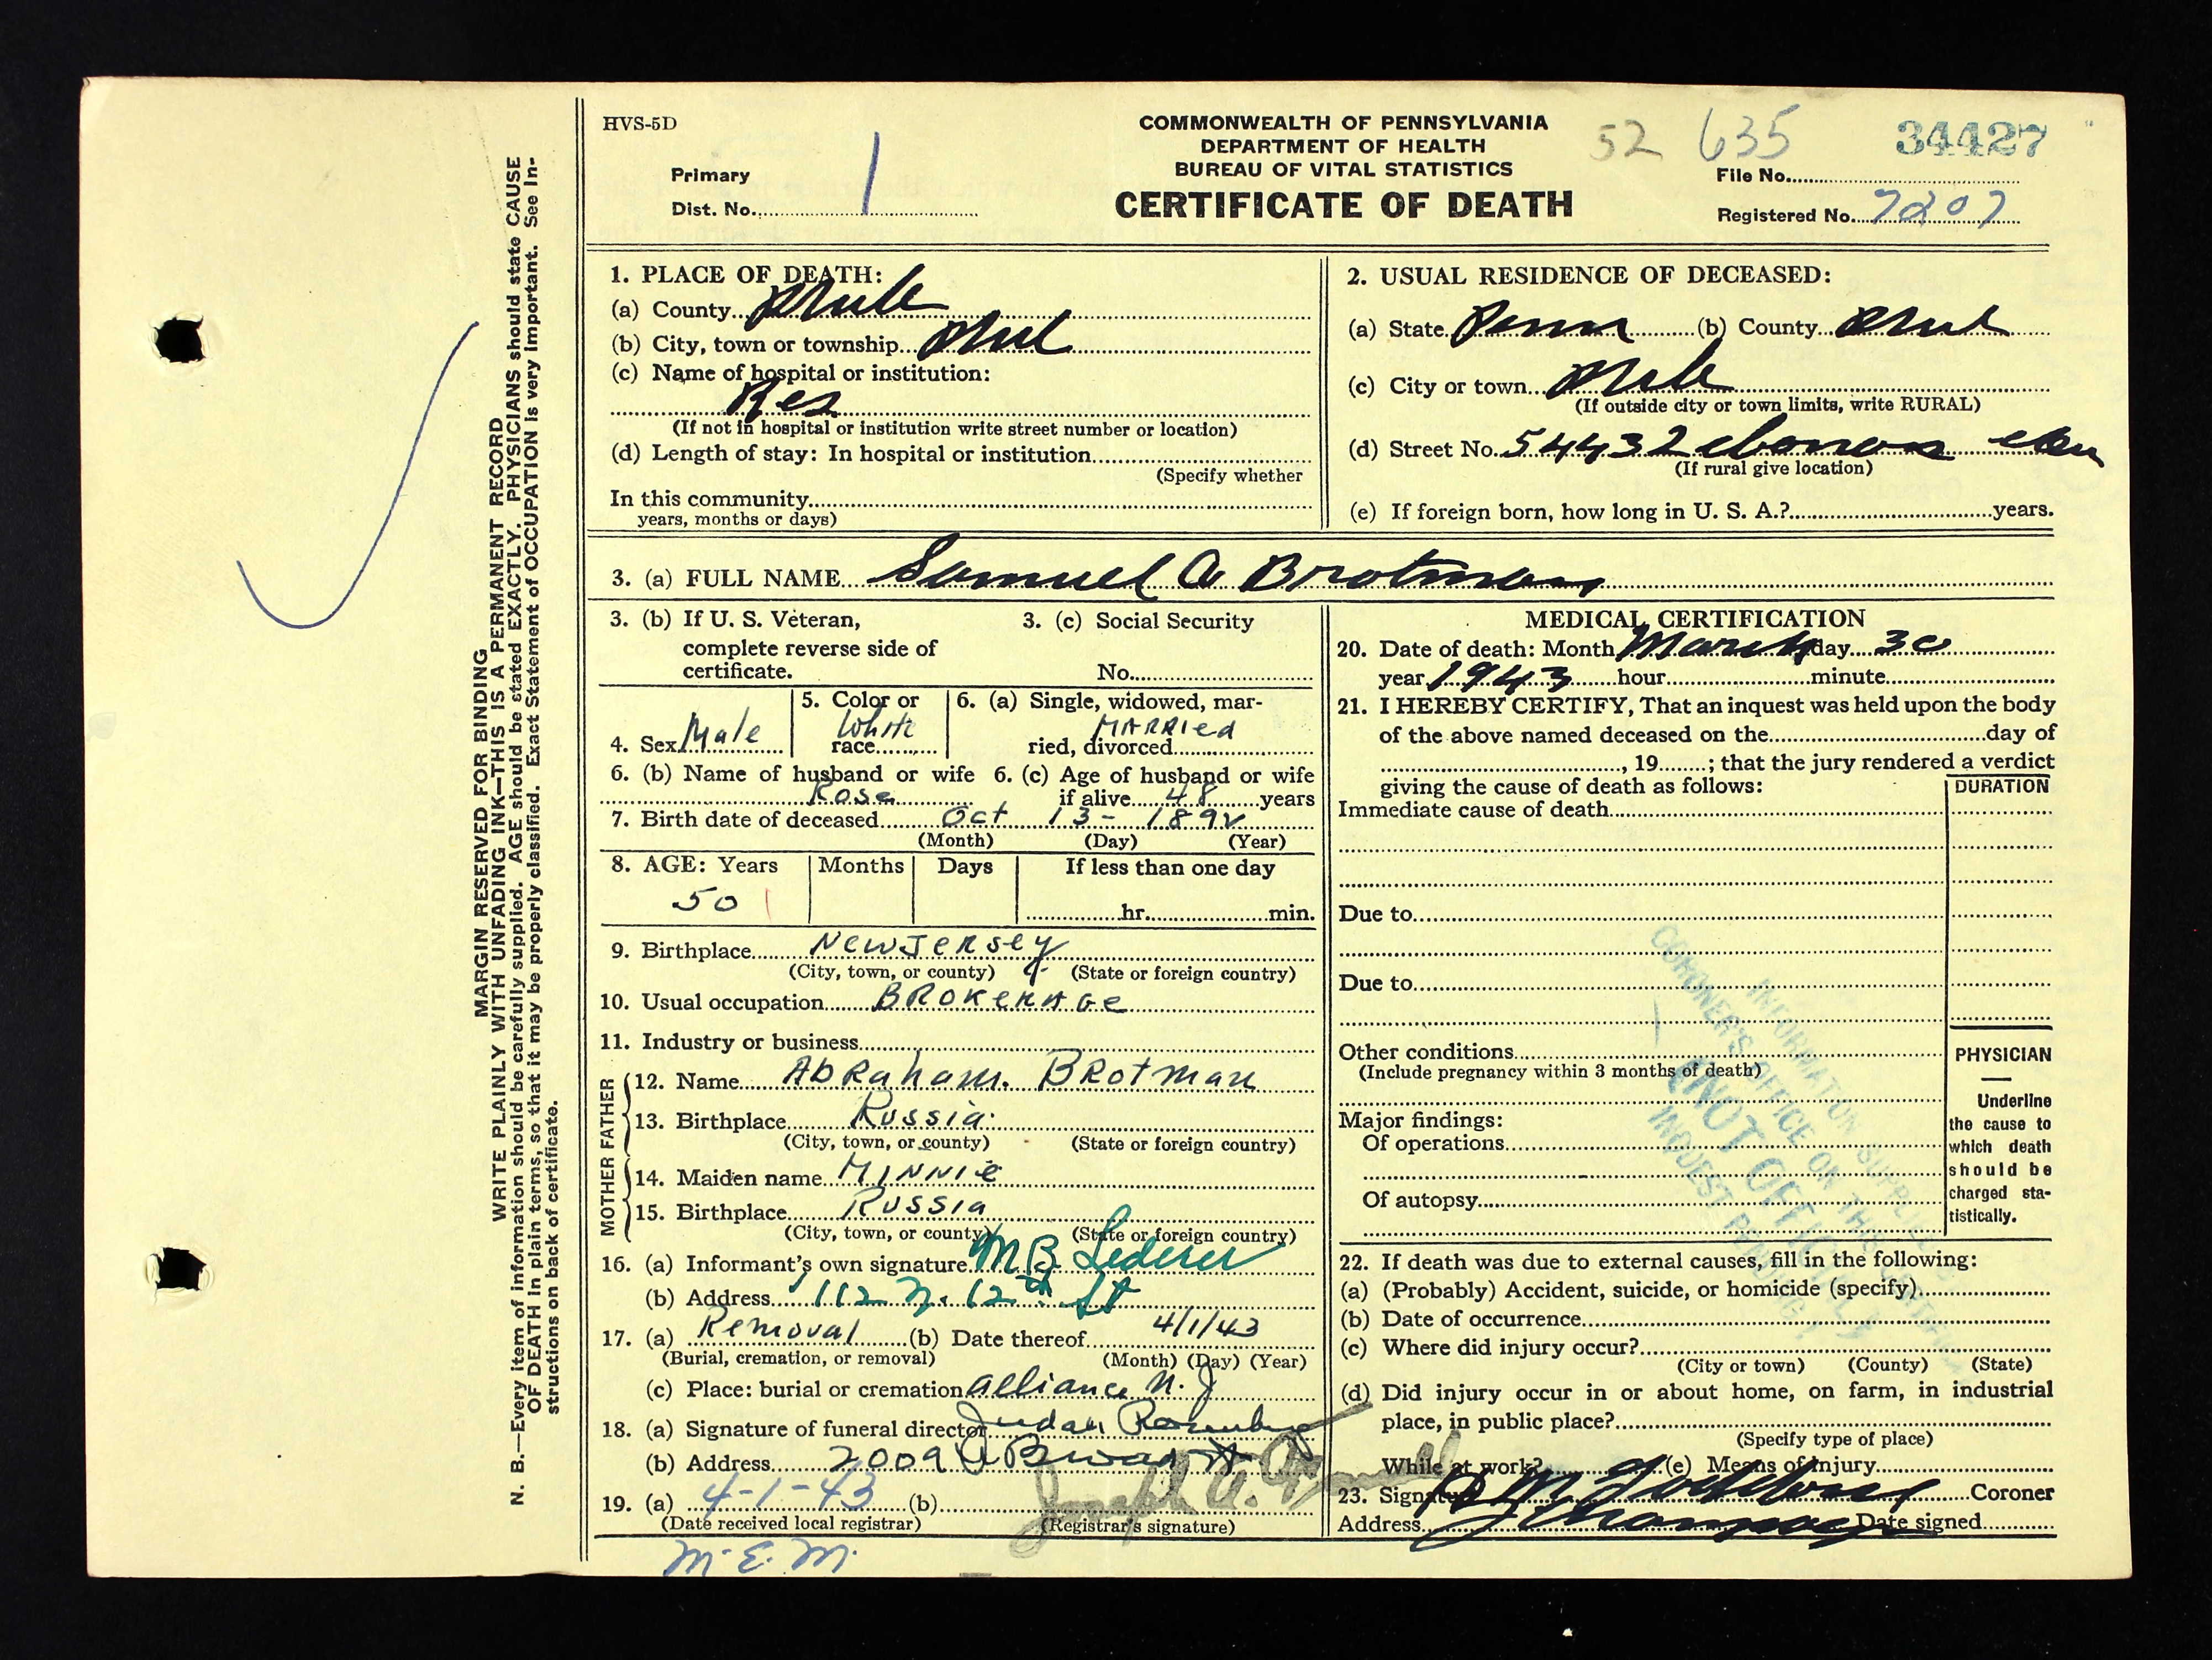 HVS-5D
COMMONWEALTH OF PENNSYLVANIA
DEPARTMENT OF HEALTH
BUREAU OF VITAL STATISTICS
CERTIFICATE OF DEATH
Primary
Dist. No. 1
52 635 34427
File No.
Registered No. 7207
1. PLACE OF DEATH:
(a) County Phila
(b) City, town or township Phil
(c) Name of hospital or institution:
Res
(If not in hospital or institution write street number or location)
(d) Length of stay: In hospital or institution
(Specify whether
In this community
years, months or days)
2. USUAL RESIDENCE OF DECEASED:
(a) State Penna (b) County Phil
(c) City or town Phila
(If outside city or town limits, write RURAL)
(d) Street No. 5443
(If rural give location)
(e) If foreign born, how long in U. S. A.? years.
3. (a) FULL NAME Samuel A Brotman
3. (b) If U. S. Veteran,
complete reverse side of
certificate.
3. (c) Social Security
No.
4. Sex Male
5. Color or
race White
6. (a) Single, widowed, mar-
ried, divorced MARRIed
6. (b) Name of husband or wife
Rose
6. (c) Age of husband or wife
if alive 48 years
7. Birth date of deceased Oct 13- 1892
(Month) (Day) (Year)
8. AGE: Years Months Days If less than one day
50
hr. min.
9. Birthplace New Jersey
(City, town, or county) (State or foreign country)
10. Usual occupation BROKERAGE
11. Industry or business
FATHER
12. Name Abraham. Brotman
13. Birthplace Russia
(City, town, or county) (State or foreign country)
MOTHER
14. Maiden name MINNIE
15. Birthplace Russia
(City, town, or county) (State or foreign country)
16. (a) Informant's own signature M B Lederer
(b) Address 1112 N. 12th St
17. (a) Removal (b) Date thereof 4/1/43
(Burial, cremation, or removal) (Month) (Day) (Year)
(c) Place: burial or cremation Alliance N.J
18. (a) Signature of funeral director
(b) Address 2009
19. (a) 4-1-43 (b) Joseph
(Date received local registrar) (Registrar's signature)
M. E. M.
MEDICAL CERTIFICATION
20. Date of death: Month March day 30
year 1943 hour minute
21. I HEREBY CERTIFY, That an inquest was held upon the body
of the above named deceased on the day of
, 19 ; that the jury rendered a verdict
giving the cause of death as follows:
DURATION
Immediate cause of death
Due to
Due to
Other conditions
(Include pregnancy within 3 months of death)
Major findings:
Of operations
Of autopsy
PHYSICIAN
Underline
the cause to
which death
should be
charged sta-
tistically.
INFORMATION SUPPLIED
CORONER'S OFFICE ON THIS
(NOT OFFICIAL)
INQUEST PENDING
22. If death was due to external causes, fill in the following:
(a) (Probably) Accident, suicide, or homicide (specify)
(b) Date of occurrence
(c) Where did injury occur?
(City or town) (County) (State)
(d) Did injury occur in or about home, on farm, in industrial
place, in public place?
(Specify type of place)
While at work? (e) Means of injury
23. Signature Coroner
Address Date signed
MARGIN RESERVED FOR BINDING
WRITE PLAINLY WITH UNFADING INK—THIS IS A PERMANENT RECORD
N. B.—Every item of information should be carefully supplied. AGE should be stated EXACTLY. PHYSICIANS should state CAUSE
OF DEATH in plain terms, so that it may be properly classified. Exact Statement of OCCUPATION is very important. See In-
structions on back of certificate.